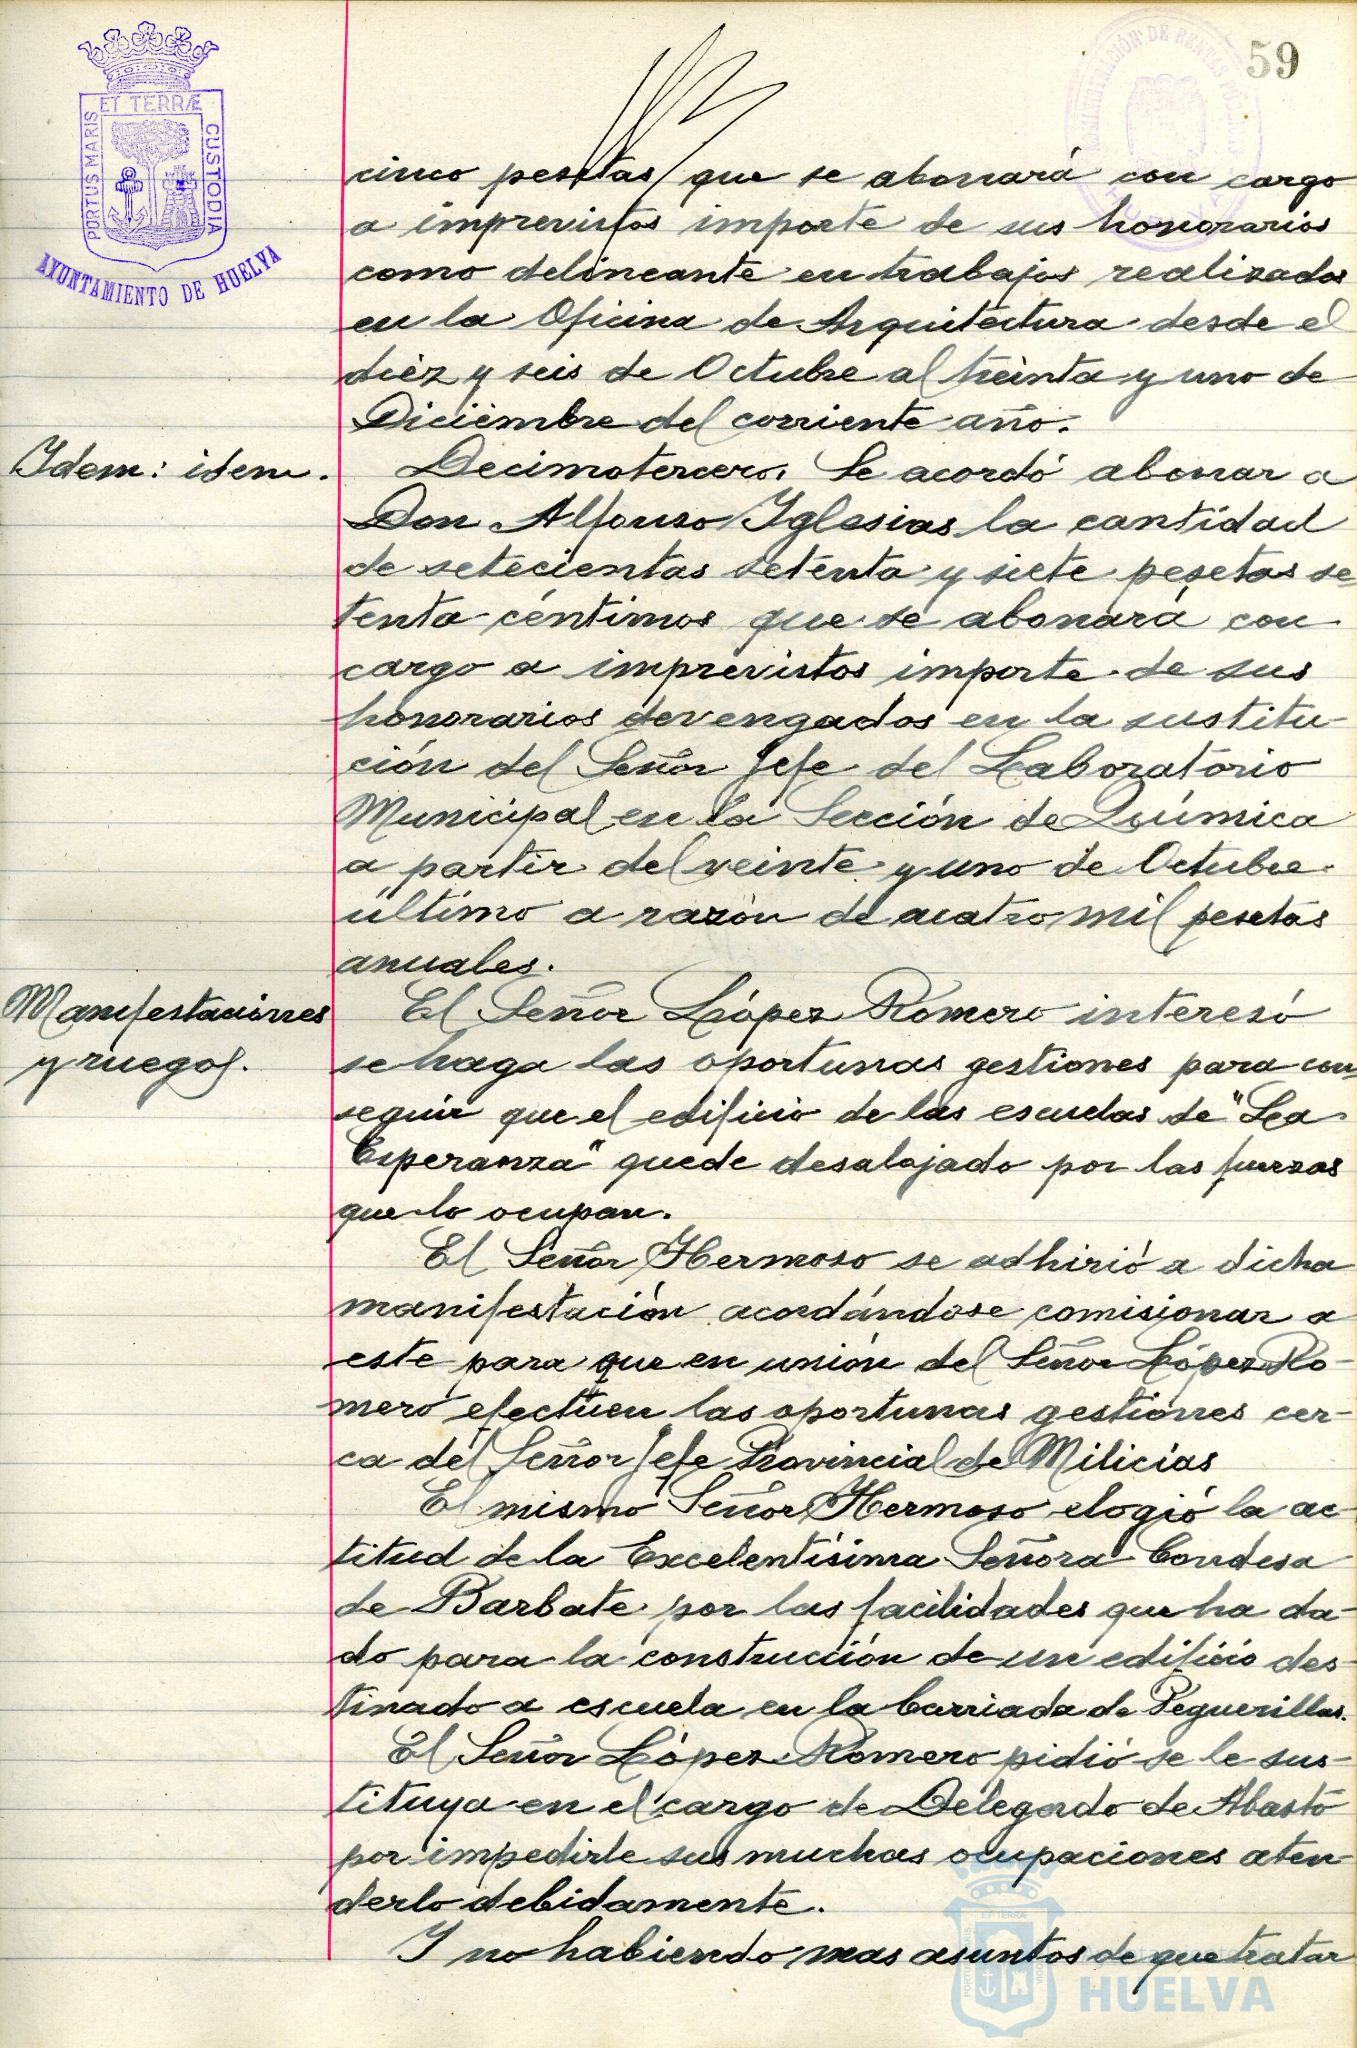 59
ET TERRÆ
PORTUS MARIS
CUSTODIA
AYUNTAMIENTO DE HUELVA
ADMINISTRACIÓN DE RENTAS PÚBLICAS
HUELVA
cinco pesetas que se abonará con cargo
a imprevistos importe de sus honorarios
como delineante en trabajos realizados
en la Oficina de Arquitectura desde el
diez y seis de Octubre al treinta y uno de
Diciembre del corriente año.
Idem: idem.
Decimotercero. Se acordó abonar a
Don Alfonso Iglesias la cantidad
de setecientas setenta y siete pesetas se-
tenta céntimos que se abonará con
cargo a imprevistos importe de sus
honorarios devengados en la sustitu-
ción del Señor Jefe del Laboratorio
Municipal en la Sección de Química
a partir del veinte y uno de Octubre
último a razón de cuatro mil pesetas
anuales.
Manifestaciones
y ruegos.
El Señor López Romero interesó
se haga las oportunas gestiones para con-
seguir que el edificio de las escuelas de "La
Esperanza" quede desalojado por las fuerzas
que lo ocupan.
El Señor Hermoso se adhirió a dicha
manifestación acordándose comisionar a
este para que en unión del Señor López Ro-
mero efectuen las oportunas gestiones cer-
ca del Señor Jefe Provincial de Milicias
El mismo Señor Hermoso elogió la ac-
titud de la Excelentísima Señora Condesa
de Barbate por las facilidades que ha da-
do para la construcción de un edificio des-
tinado a escuela en la barriada de Peguerillas.
El Señor López Romero pidió se le sus-
tituya en el cargo de Delegado de Abasto
por impedirle sus muchas ocupaciones aten-
derlo debidamente.
Y no habiendo mas asuntos de que tratar
HUELVA